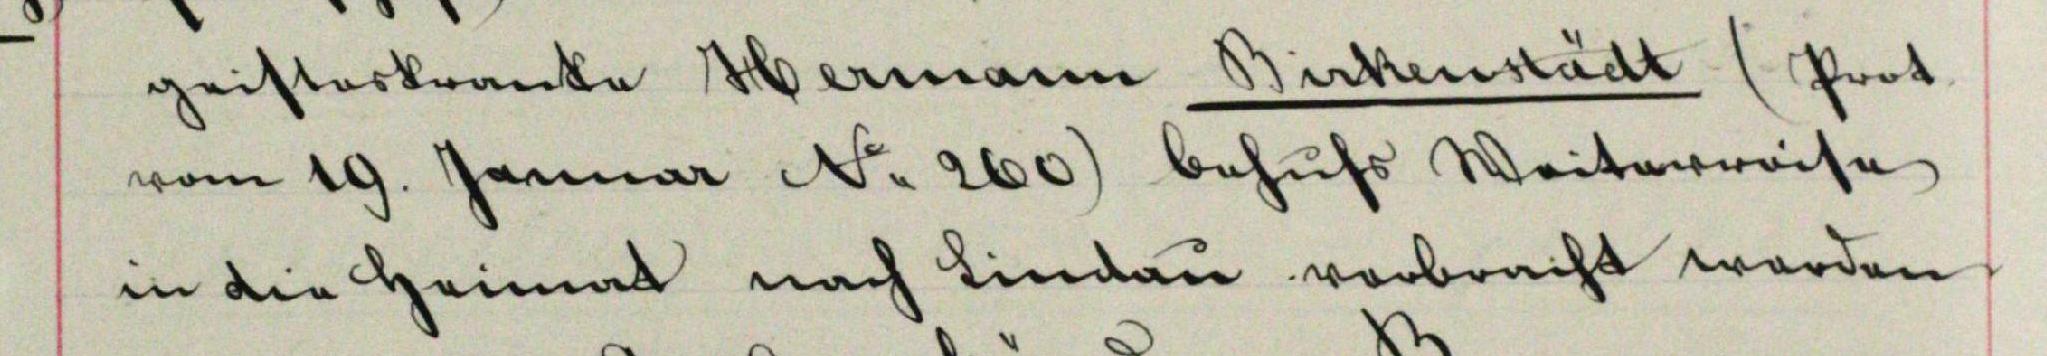 geisteskranke Hermann Birkenstädt (Prot
vom 19. Januar No. 260) behufs Weiterreise
in die Heimat nach Lindau verbracht werden